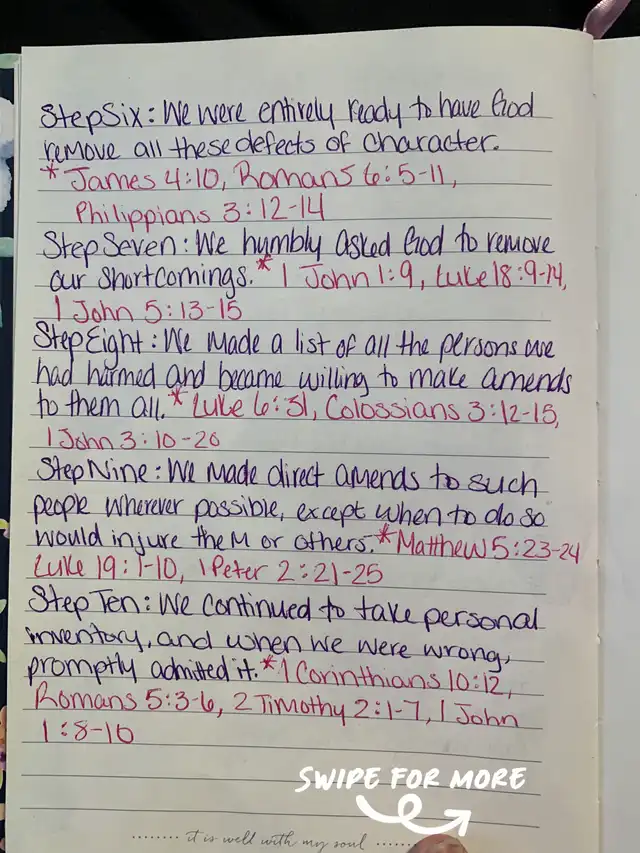 Step Six: We were entirely ready to have God
remove all these defects of character.
* James 4:10, Romans 6:5-11,
Philippians 3:12-14
Step Seven: We humbly asked God to remove
our shortcomings. * 1 John 1:9, Luke 18:9-14,
1 John 5:13-15
Step Eight: We made a list of all the persons we
had harmed and became willing to make amends
to them all. * Luke 6:31, Colossians 3:12-15,
1 John 3:10-20
Step Nine: We made direct amends to such
people wherever possible, except when to do so
would injure them or others. * Matthew 5:23-24
Luke 19:1-10, 1 Peter 2:21-25
Step Ten: We continued to take personal
inventory, and when we were wrong,
promptly admitted it. * 1 Corinthians 10:12,
Romans 5:3-6, 2 Timothy 2:1-7, 1 John
1:8-10
SWIPE FOR MORE
........ it is well with my soul ......